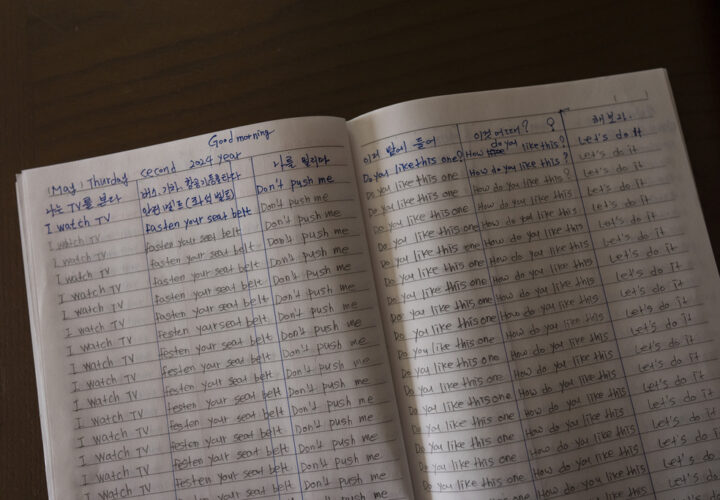 Good morning
(May) Thurday second 2024 year
나는 TV를 본다
안전 벨트 (좌석 벨트)
나를
Don't push me
I watch TV fasten your seat belt Don't push me
I watch TV fasten your seat belt Don't push me
I watch TV fasten your seat belt Don't push me
I watch TV fasten your seat belt Don't push me
I watch TV fasten your seat belt Don't push me
I watch TV festen your seat belt Don't push me
I watch TV festen your seat belt Don't push me
I watch TV festen your seat belt Don't push me
I watch TV festen your seat belt Don't push me
I watch TV festen your seat belt Don't push me
I watch TV festen your seat belt Don't push me
I watch TV festen your seat belt Don't push me
I watch TV festen your seat belt Don't push me
I watch TV festen your seat belt Don't push me
이거 들어
이건 어때? 해보자
Do you like this one? How do you like this? Let's do it
Do you like this one How do you like this? Let's do it
Do you like this one How do you like this? Let's do it
Do you like this one How do you like this Let's do it
Do you like this one How do you like this Let's do it
Do you like this one How do you like this Let's do it
Do you like this one How do you like this Let's do it
Do you like this one How do you like this Let's do it
Do you like this one How do you like this Let's do it
Do you like this one How do you like this Let's do it
Do you like this one How do you like this Let's do it
Do you like this one How do you like this Let's do it
Do you like this one How do you like this Let's do it
Do you like this one How do you like this Let's do it
Do you like this one How do you like this Let's do it
Do you like this one How do you like this Let's do it